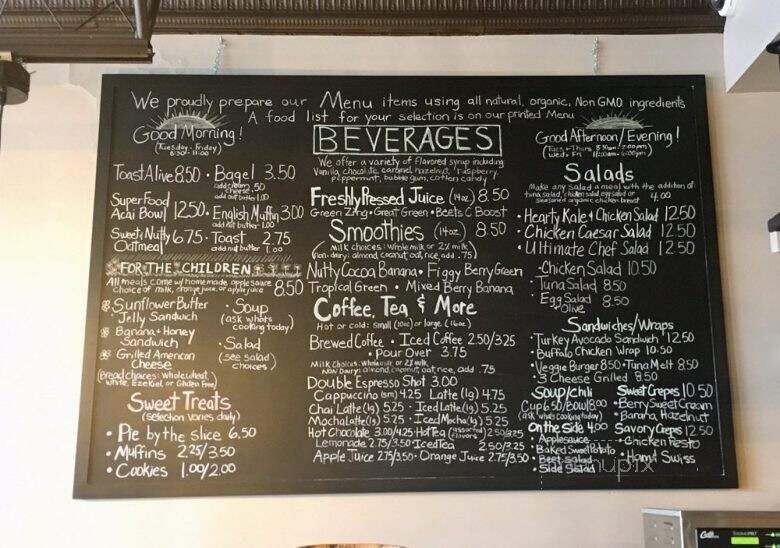 We proudly prepare our Menu items using all natural, organic, Non GMO ingredients
A food list for your selection is on our printed Menu
Good Morning!
(Tuesday - Friday)
8:30 - 11:00
Toast Alive 8.50 • Bagel 3.50
add cream cheese .50
add nut butter 1.00
Super Food Acai Bowl 12.50 • English Muffin 3.00
add nut butter 1.00
Sweet Nutty Oatmeal 6.75 • Toast 2.75
add nut butter 1.00
FOR THE CHILDREN
All meals come w/ homemade applesauce
choice of milk, orange juice, or apple juice 8.50
Sunflower Butter
Jelly Sandwich
Banana + Honey
Sandwich
Grilled American
Cheese
(Bread choices: whole wheat,
white, Ezekiel, or Gluten Free)
• Soup
(ask whats
cooking today)
• Salad
(see salad
choices)
Sweet Treats
(selection varies daily)
• Pie by the slice 6.50
• Muffins 2.25/3.50
• Cookies 1.00/2.00
BEVERAGES
We offer a variety of flavored syrup including
Vanilla, chocolate, caramel, hazelnut, raspberry
peppermint, bubble gum, cotton candy
Freshly Pressed Juice (14oz) 8.50
Green Zing • Great Green • Beets C Boost
Smoothies (14oz) 8.50
Milk choices: whole milk or 2% milk
(non-dairy: almond, coconut, oat, rice, add .75)
Nutty Cocoa Banana • Figgy Berry Green
Tropical Green • Mixed Berry Banana
Coffee, Tea & More
Hot or cold: small (10oz) or large (16oz)
Brewed Coffee • Iced Coffee 2.50/3.25
• Pour Over 3.75
Milk Choices: whole milk or 2% milk
Non Dairy: almond, coconut, oat, rice, add .75
Double Espresso Shot 3.00
Cappuccino (sm) 4.25 Latte (lg) 4.75
Chai Latte (lg) 5.25 • Iced Latte (lg) 5.25
Mocha Latte (lg) 5.25 • Iced Mocha (lg) 5.25
Hot Chocolate 3.00/4.25 Hot Tea (assorted flavors) 2.50/3.25
Lemonade 2.75/3.50 Iced Tea 2.50/3.25
Apple Juice 2.75/3.50 • Orange Juice 2.75/3.50
Good Afternoon/Evening!
Salads
Make any salad a meal with the addition of:
tuna salad, chicken salad, egg salad or
seasoned organic chicken breast 4.00
• Hearty Kale + Chicken Salad 12.50
• Chicken Caesar Salad 12.50
• Ultimate Chef Salad 12.50
- Chicken Salad 10.50
• Tuna Salad 8.50
• Egg Salad 8.50
+ Olive
Sandwiches/Wraps
• Turkey Avocado Sandwich 12.50
• Buffalo Chicken Wrap 10.50
• Veggie Burger 8.50 • Tuna Melt 8.50
• 3 Cheese Grilled 8.50
Soup/Chili
Cup 6.50/Bowl 8.00
(ask whats cooking today)
On the Side 4.00
• Applesauce
• Baked Sweet Potato
• Beet salad
• Side Salad
Sweet Crepes 10.50
• Berry Sweet Cream
• Banana, Hazelnut
Savory Crepes 12.50
• Chicken Pesto
• Ham & Swiss
menupix